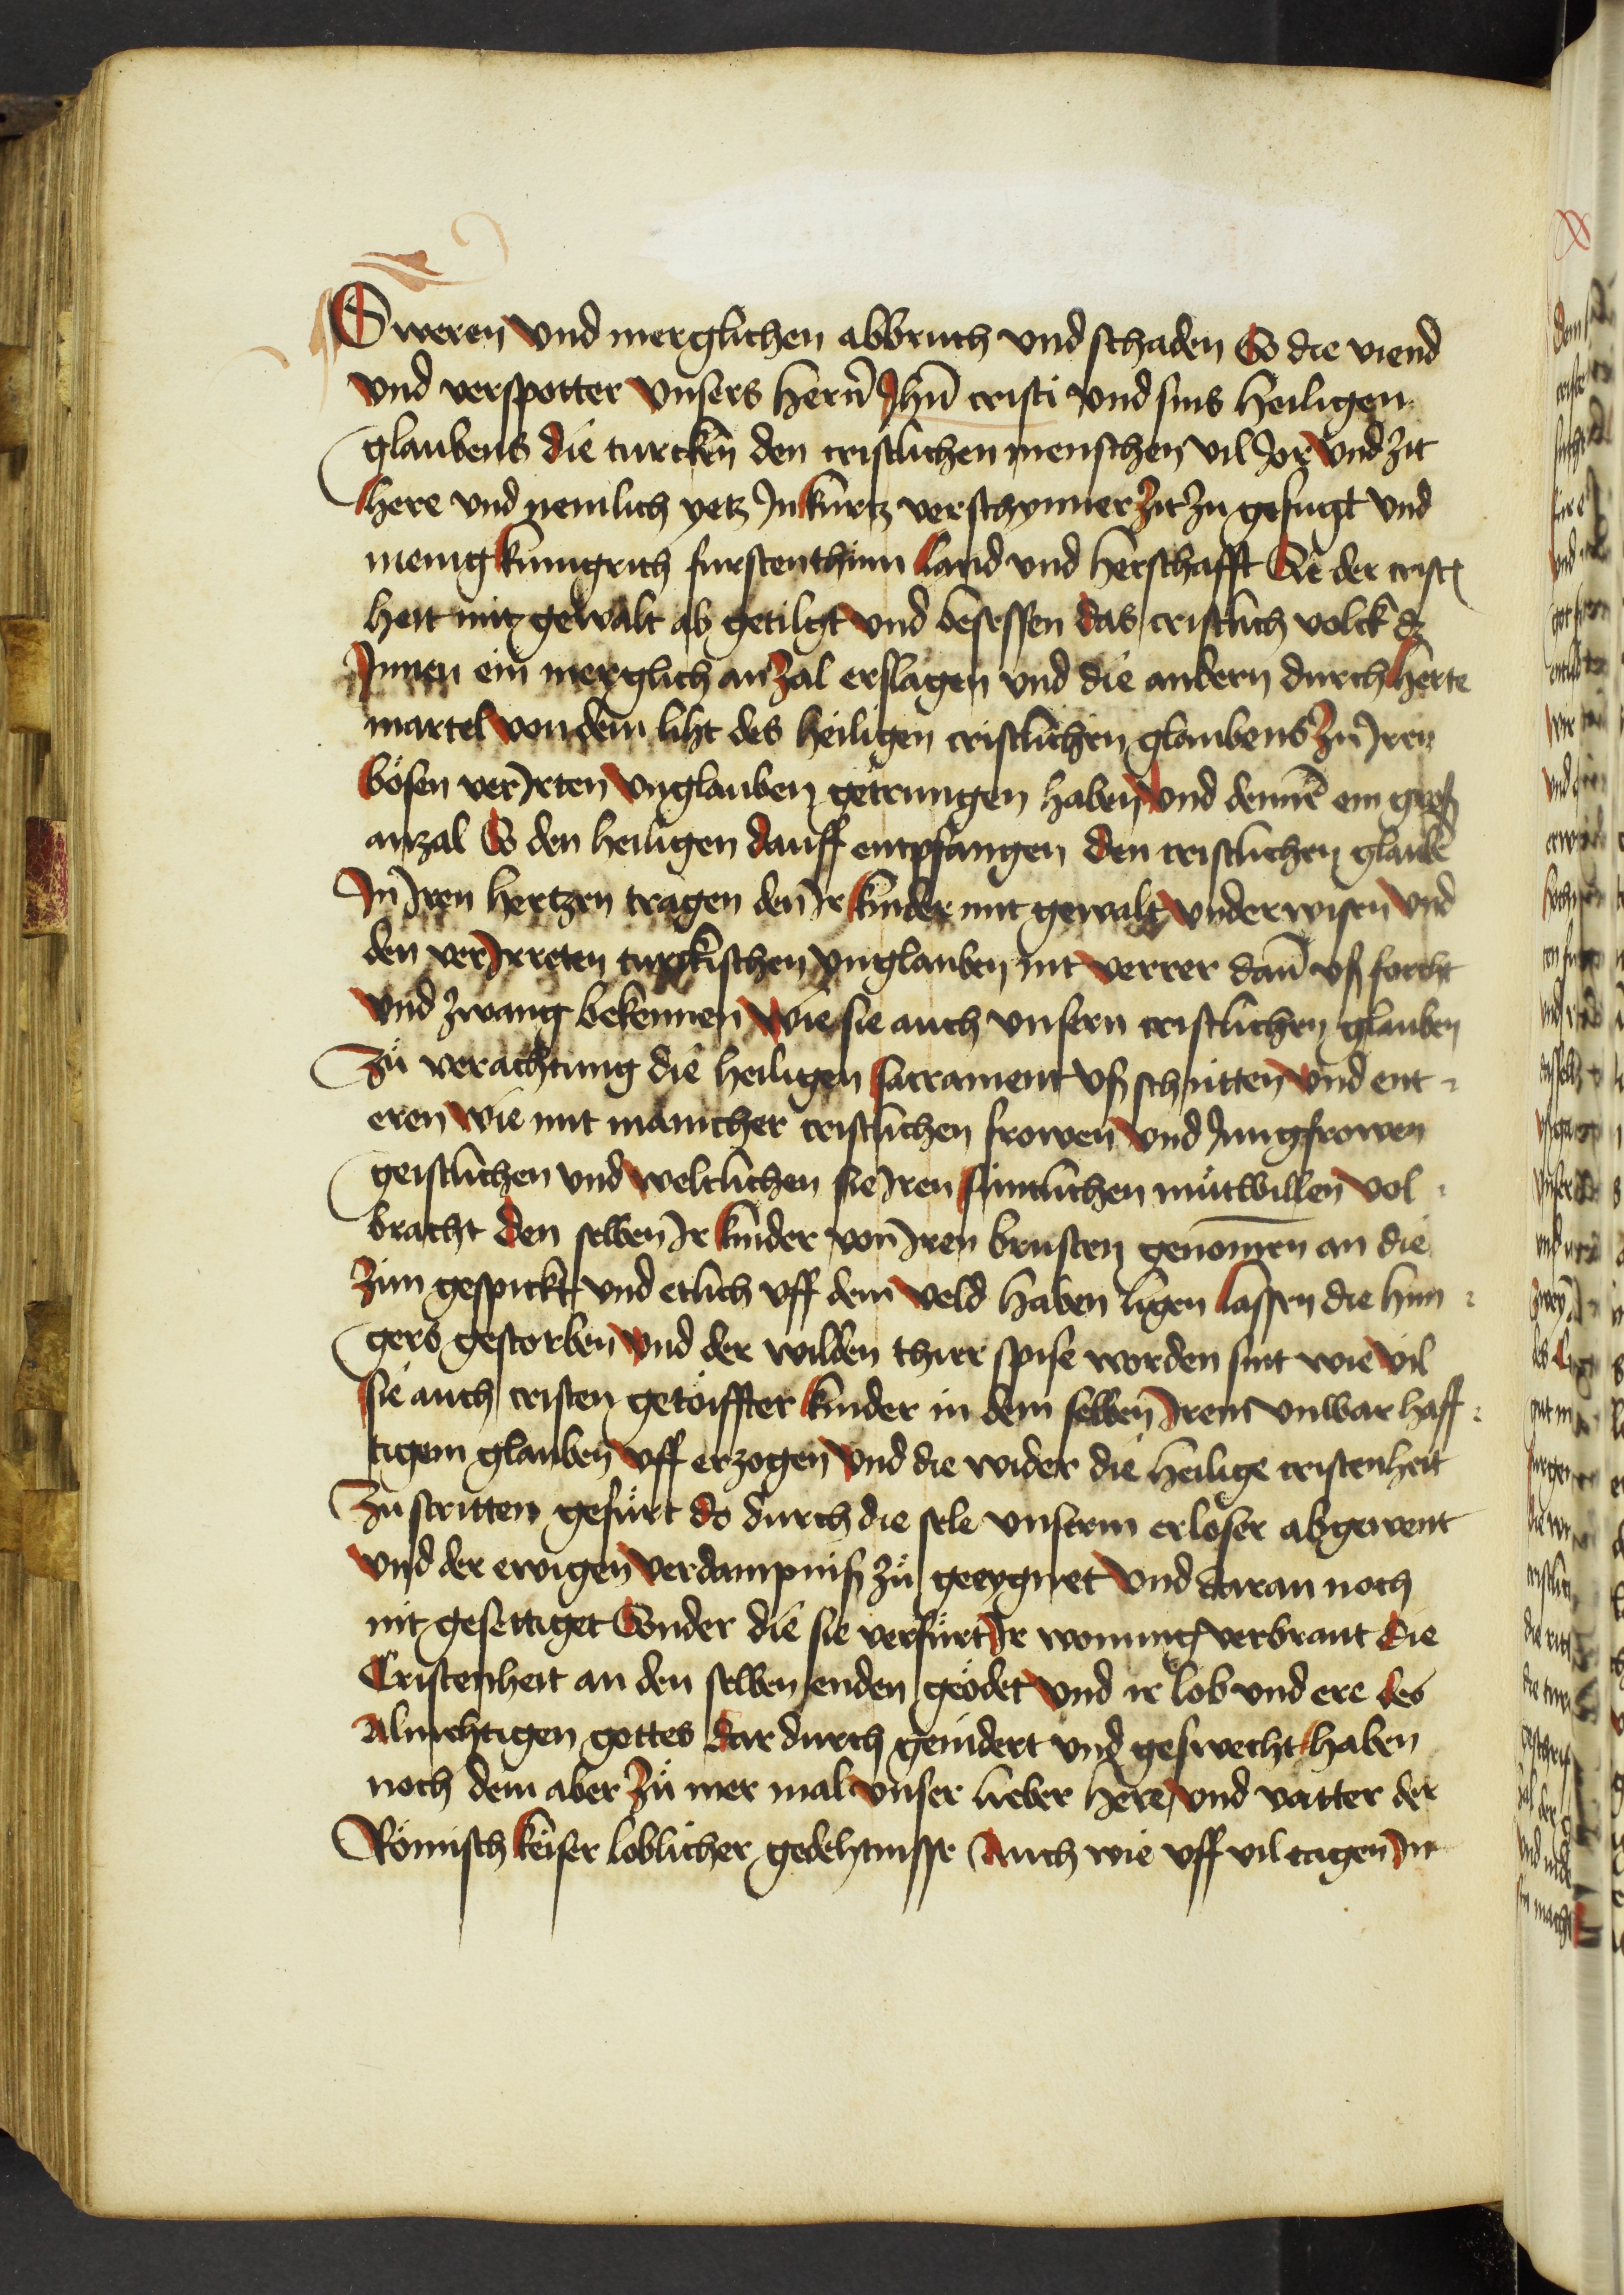 Sweren vnd merglichen abbruch vnd schaden So die viend
vnd verspotter vnsers hern̄ Jhū cristi vnd sins heiligen
glaubens die turcken den cristlichen menschen vil Jor vnd zit
here vnd nemlich yetz In kurtz verschynner zit zu gefugt vnd
menig kunigrich furstenthum Land vnd herschafft Die der crist
heit mit gewalt ab getilgt vnd besessen das cristlich volck dz
Jnnen ein merglich an zal erslagen vnd die andern durch herte
martel von dem liht des heiligen cristlichen glaubens Zu Iren
bösen verIrten vnglauben getrungen haben vnd dennē ein groß
anzal So den heiligen dauff entpfangen den cristlichen glaubē
In Iren hertzen tragen den Ir kinder mit gewalt vnderwisen vnd
den verIrreten turckischen vnglauben nit verrer dañ vß forcht
vnd zwang bekennen wie sie auch vnsern cristlichen glauben
Zů verachtung die heiligen sacrament vß schutten vnd ent
eren wie mit manicher cristlichen frowen vnd Jungfrowen
geistlichen vnd weltlichen sie Iren suntlichen můtwillen vol
bracht den selben Ir kinder von Iren brusten genomen an die
zun gespickt vnd etlich vff dem veld haben ligen lassen die hun
gers gestorben vnd der wilden thier spise worden sint wie vil
sie auch cristen getöiffter kinder in dem selben Irem vnwarhaff
tigem glauben vff erzogen vnd die wider die heilige cristenheit
Zu stritten gefürt do durch die sele vnserm erlöser abgewent
vnd der ewigen verdampniß zů geeygnet vnd daran noch
nit gesettiget Sonder die sie verfürt Ir wonung verbrant Die
Cristenheit an den selben enden geödet vnd ir lob vnd ere des
Almehtigen gottes dar durch genidert vnd geswecht haben
noch dem aber Zů mer mal vnser lieber here vnd vatter der
Römisch keiser loblicher gedehtnisse Auch wie vff vil tagen In